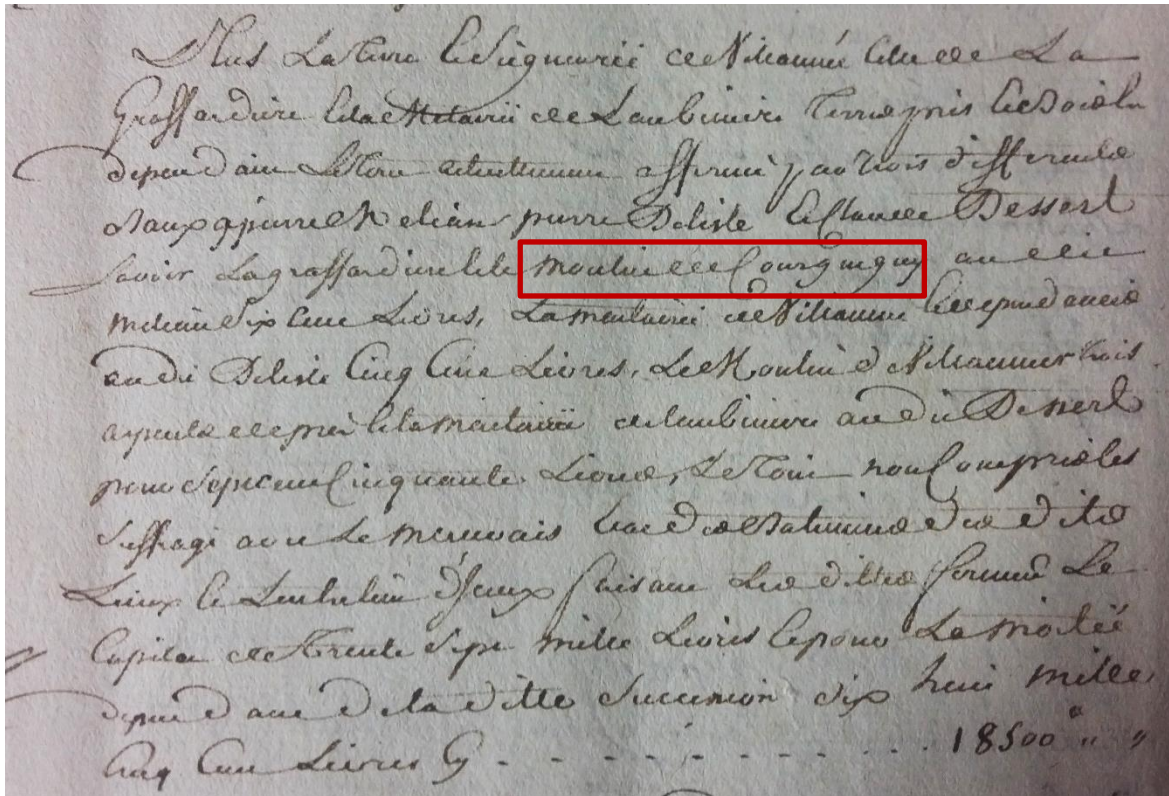 Plus La terre & Seigneurie de Villaumé celle de La
Graffardiere & la Metairie de Laubiniere Terres prés & bois en
dependant Le tout actuellement affermé par trois differents
Baux a pierre Melian pierre Delisle & Claude Dessert
Savoir La graffardiere & le moulin de Courguigny au dit
melian Six Cent Livres, La metairie de Villaumé & dependances
au dit Delisle Cinq Cent Livres, Le Moulin de Villaumé trois
arpents de pré & la metairie de laubiniere au dit Dessert
pour Sept cent Cinquante Livres, Le Tout non Compris les
Suffrages avec Le mauvais des Batiments des dits
Lieux & d'yceux faisant Les dittes sommes Le
Capital de Trente Sept mille Livres & pour La moitié
dependant de la ditte Succession dix huit mille
Cinq Cent Livres Cy - - - - - - - - 18500 " "